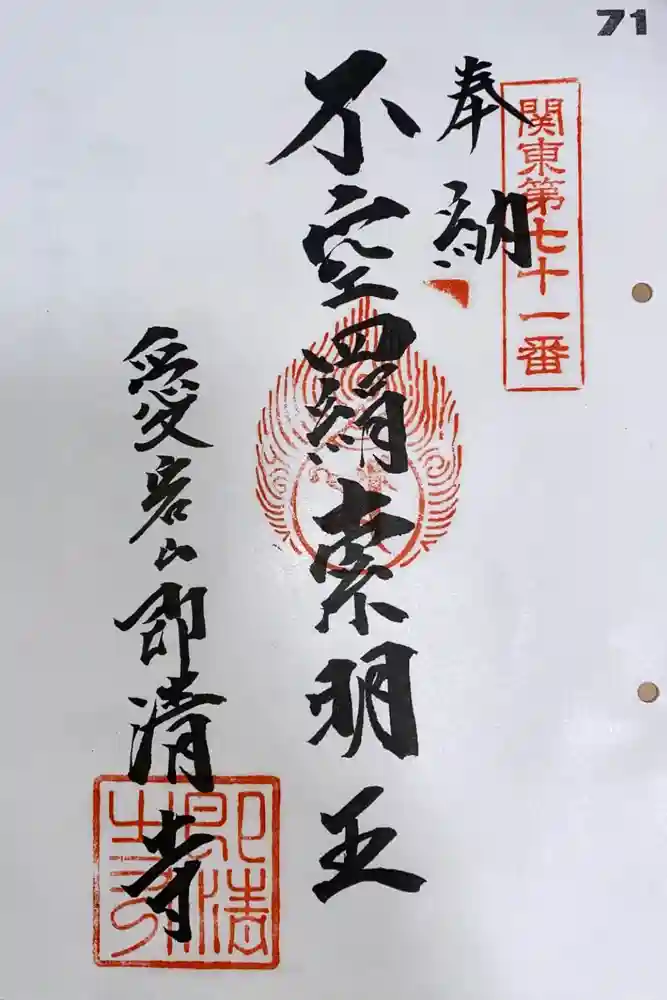 71
関東第七十一番
奉納
不空羂索明王
愛宕山即清寺
即清寺印